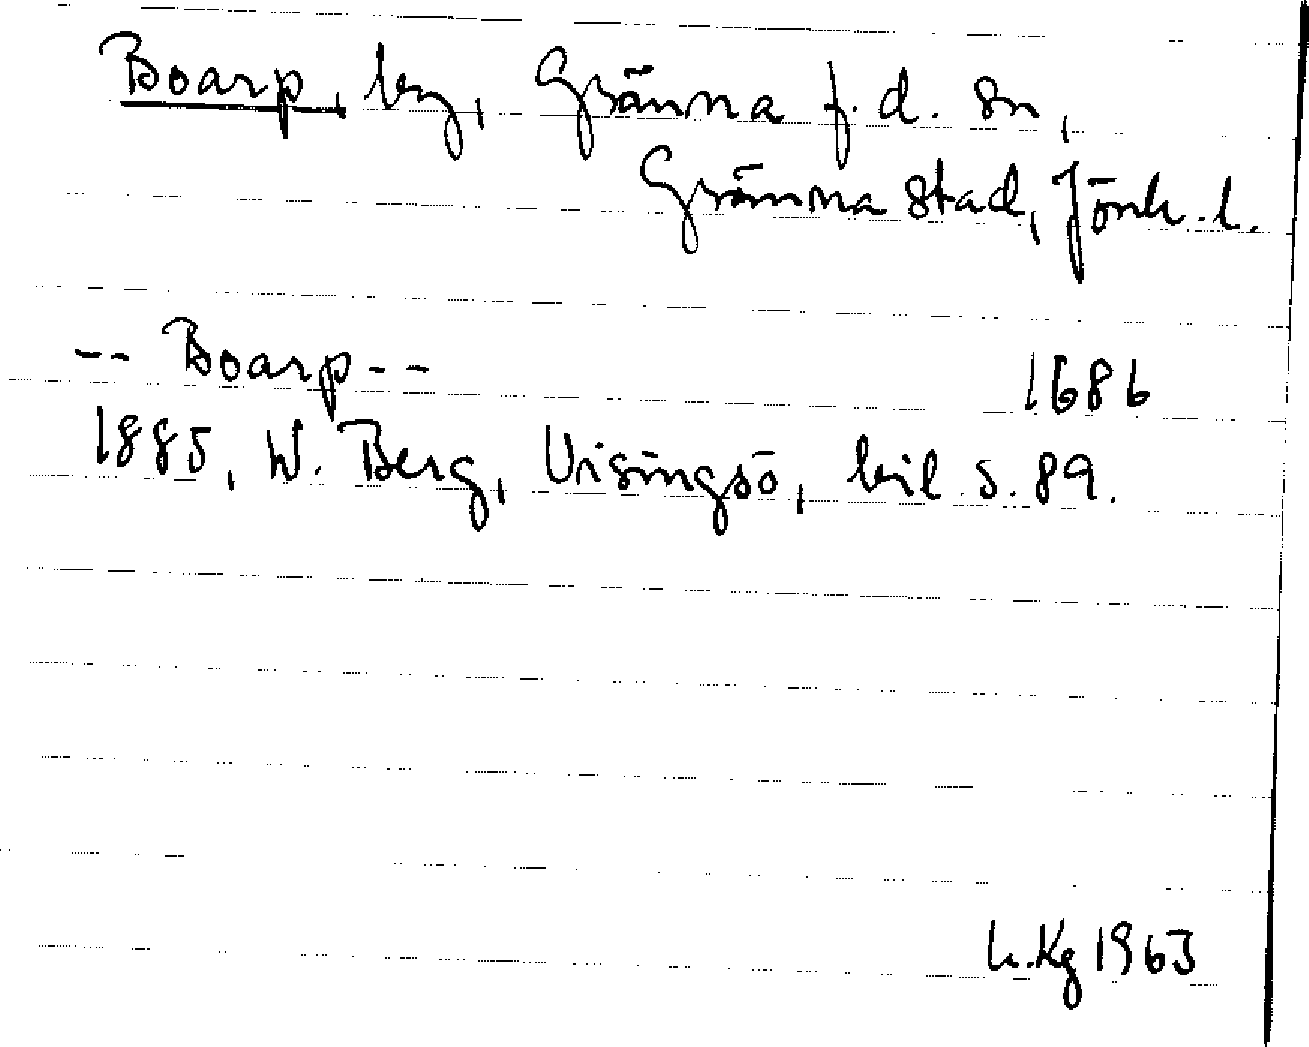 Boarp, by, Gränna f.d. sn,
Gränna stad, Jönk. l.
-- Boarp -- 1686
1885, W. Berg, Visingsö, bil s. 89.
h.Kg 1963